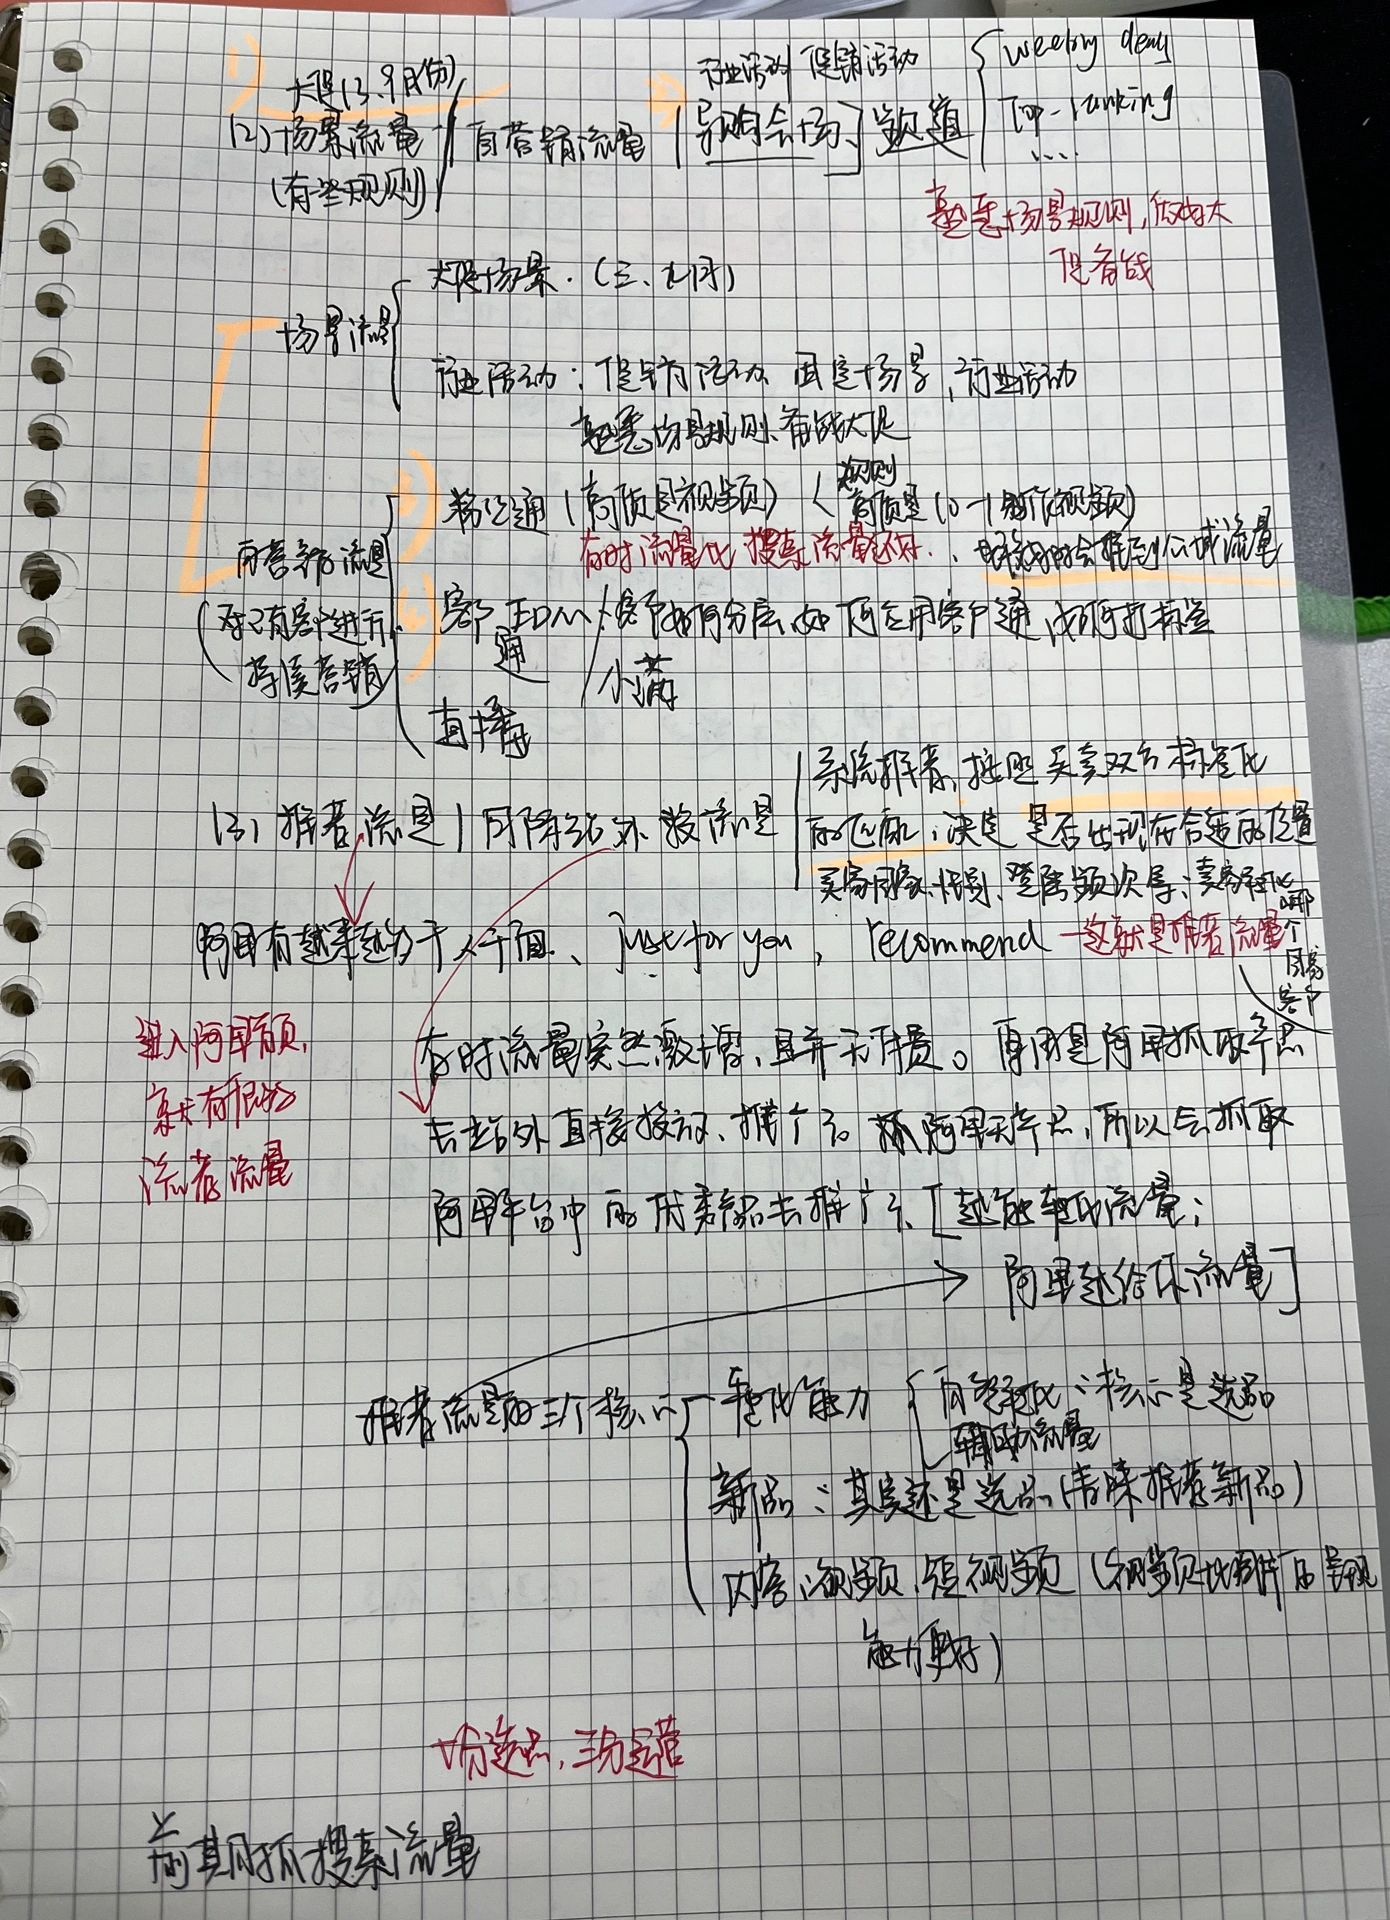 1)
大促(3、9月份)
(2) 场景流量
(有些规则)
自营销流量
行业活动 促销活动
[导购会场、] 频道
weekly deay
Top-ranking
....
熟悉场景规则,做好大
促备战
场景流量
大促场景.(三、九月)
行业活动:促销活动 固定场景,行业活动
熟悉场景规则、备战大促
自营销流量
(对已有客户进行
持续营销
粉丝通(高质量视频)
规则
高质量(0-1制作视频)
有时流量比搜索流量还好.
会推到公域流量
客户通 EDM 客户如何分层,如何应用客户通,如何打标签
小满
直播
(3) 推荐流量 | 阿里站外投流量
系统推荐,按照买卖双方标签化
的匹配,决定是否出现在合适的位置
买家国家、性别、登陆频次等;卖家
哪个国家客户
阿里有越来越多千人千面、just for you, recommend
一这就是推荐流量
进入阿里首页,
就有很多
流荐流量
有时流量突然激增,且并无付费。原因是阿里抓取产品
去站外直接投放、推广。 所以会抓取
阿里平台中的优秀产品去推广、[越能转化流量;
阿里越给你流量]
推荐流量的三个核心
转化能力
自然转化:核心是选品
辅助流量
新品:其实还是选品(青睐推荐新品)
内容:视频,短视频(视频比图片的呈现
能力更好)
七分选品,三分运营
前期抓搜索流量